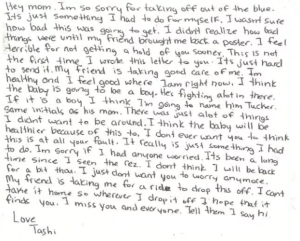 Hey mom. Im so sorry for taking off out of the blue.
Its just something I had to do for myself. I wasnt sure
how bad this was going to get. I didnt realize how bad
things were until my friend brought me back a poster. I feel
terrible for not getting a hold of you sooner. This is not
the first time I wrote this letter to you. Its just hard
to send it. My friend is taking good care of me. Im
healthy and I feel good where I am right now. I think
the baby is going to be a boy. Hes fighting alot in there.
If it is a boy I think Im going to name him Tucker.
Same initials as his mom. There was just alot of things
I didnt want to be around. I think the baby will be
healthier because of this to. I dont ever want you to think
this is at all your fault. It really is just something I had
to do. Im sorry if I had anyone worried. Its been a long
time since I seen the rez. I dont think I will be back
for a bit than. I just dont want you to worry anymore.
My friend is taking me for a ride to drop this off. I cant
take it home so wherever I drop it off I hope that it
finds you. I miss you and everyone. Tell them I say hi
Love
Tashi